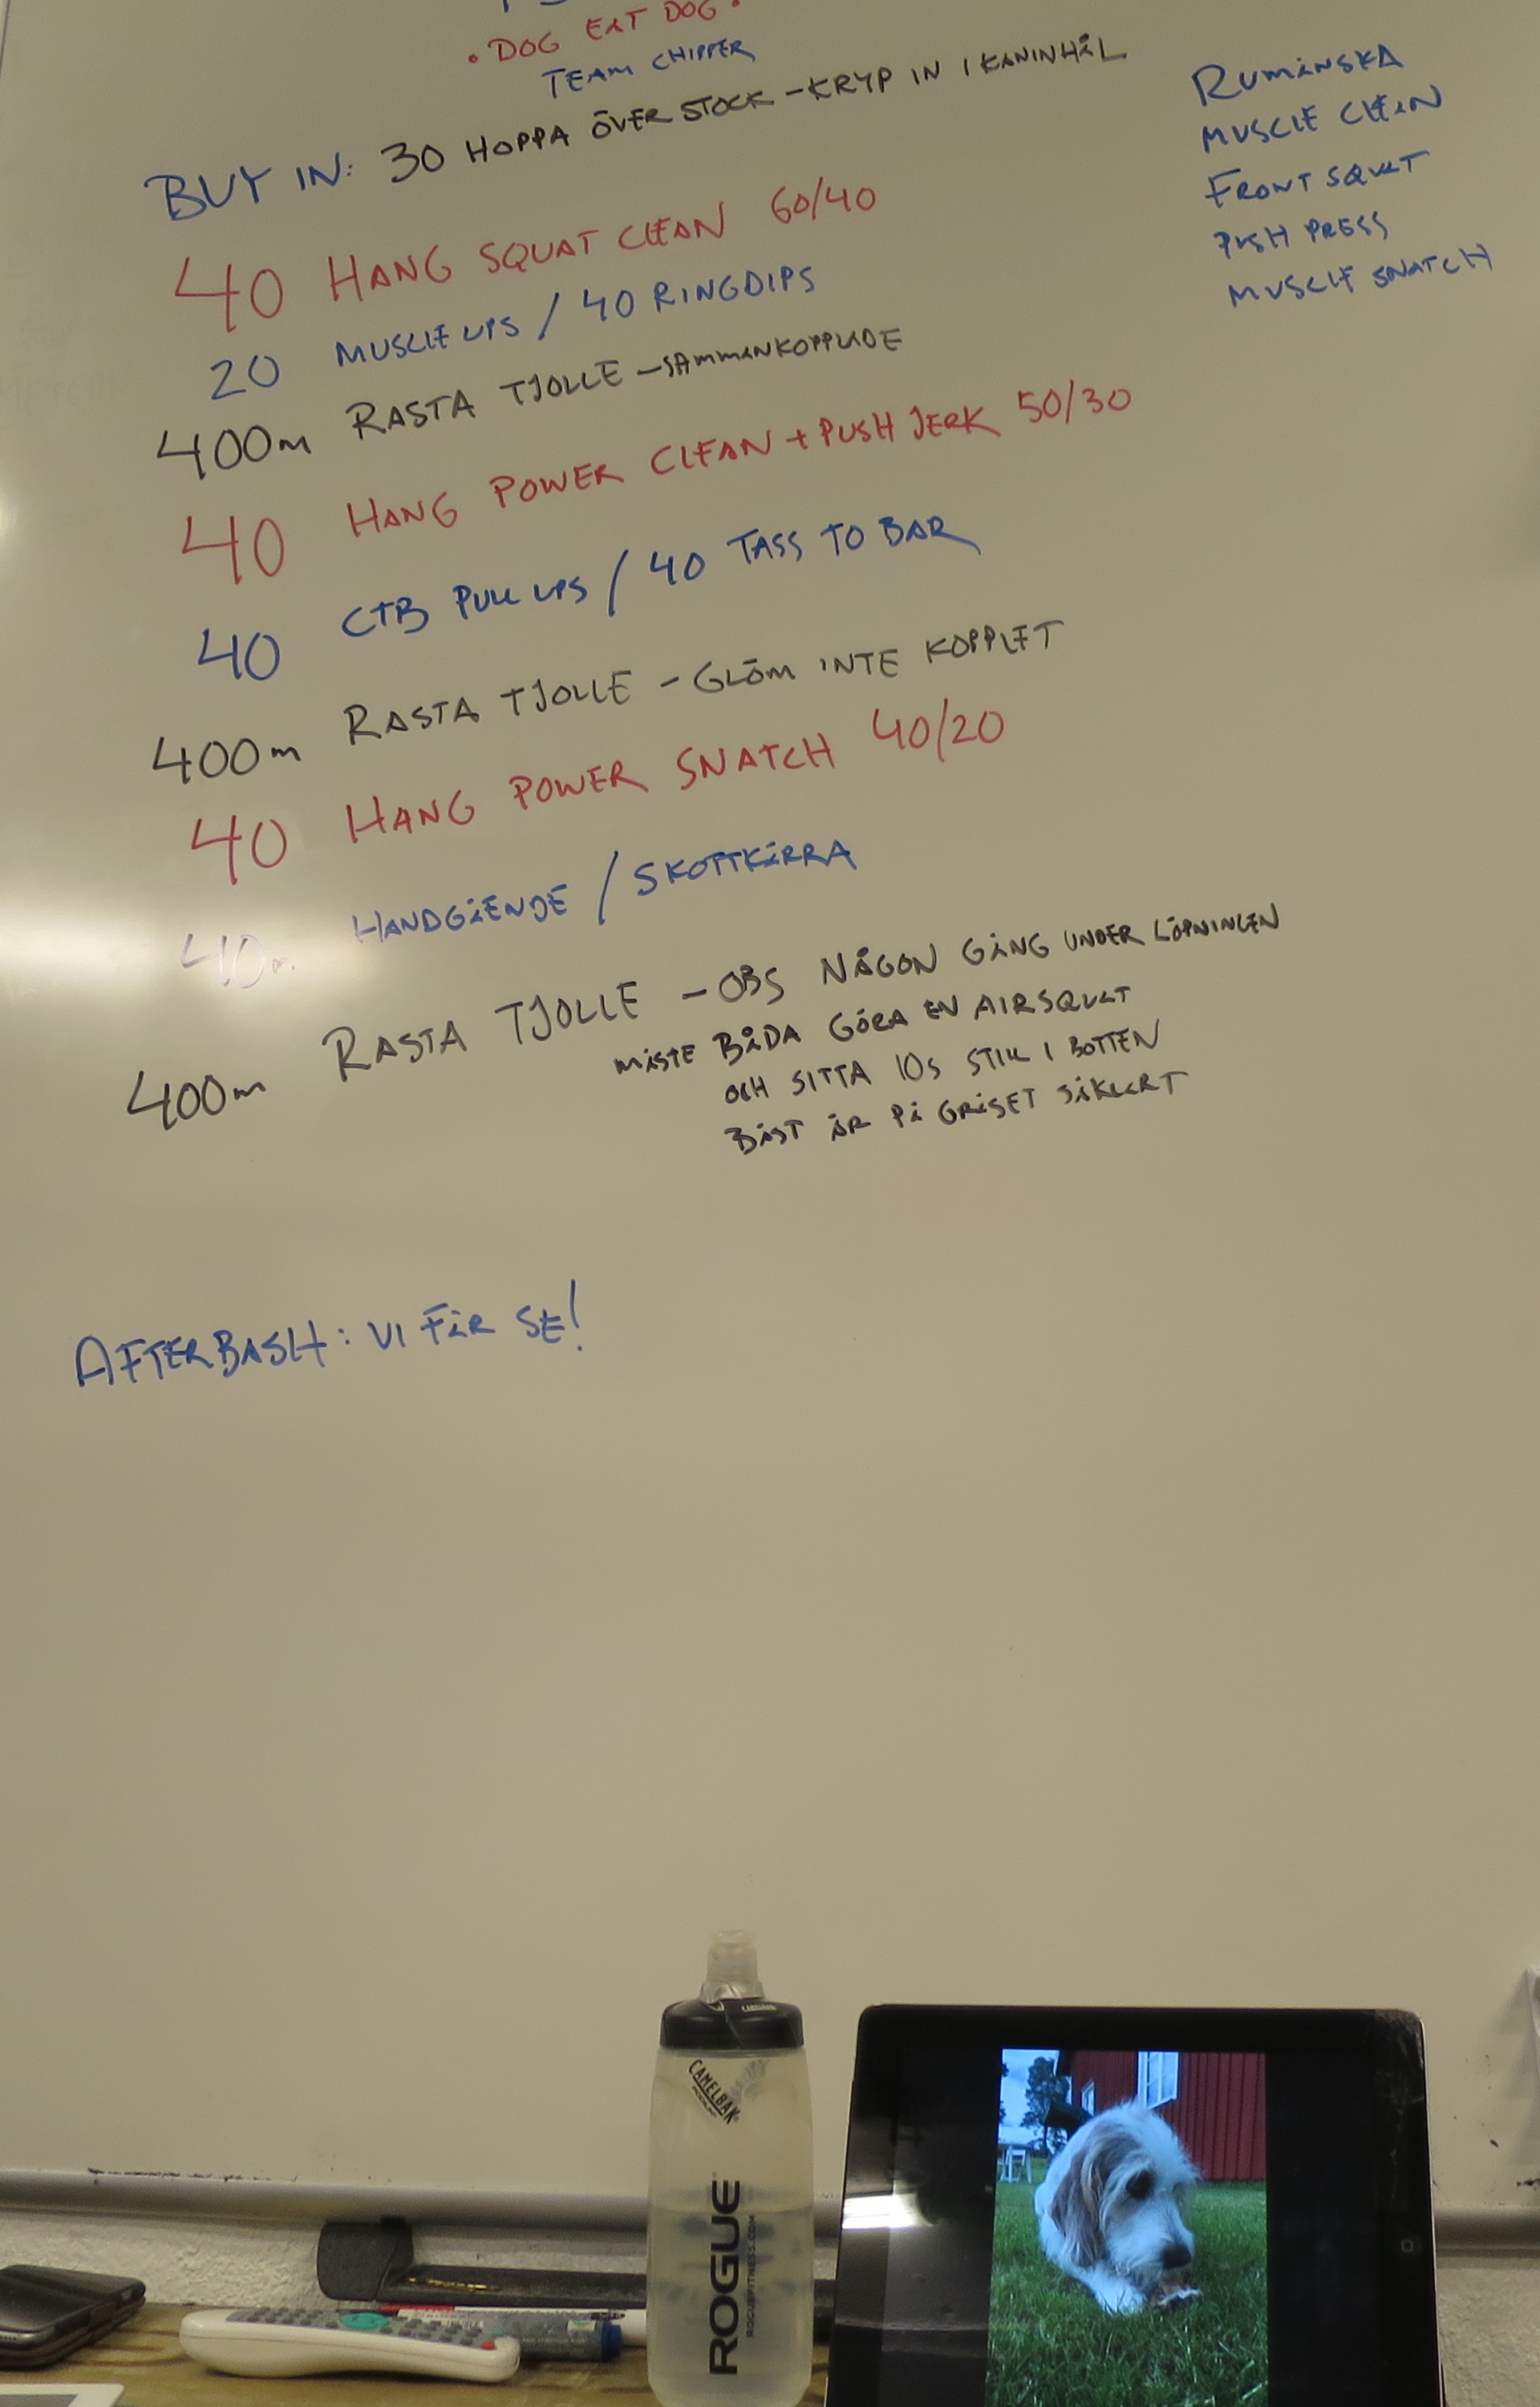 • DOG EAT DOG •
TEAM CHIPPER
BUY IN: 30 HOPPA ÖVER STOCK - KRYP IN I KANINHÅL
40 HANG SQUAT CLEAN 60/40
20 MUSCLE UPS / 40 RINGDIPS
400m RASTA TJOLLE - SAMMANKOPPLADE
40 HANG POWER CLEAN + PUSH JERK 50/30
40 CTB PULL UPS / 40 TASS TO BAR
400m RASTA TJOLLE - GLÖM INTE KOPPLET
40 HANG POWER SNATCH 40/20
40m HANDGÅENDE / SKOTTKÄRRA
400m RASTA TJOLLE - OBS NÅGON GÅNG UNDER LÖPNINGEN
MÅSTE BÅDA GÖRA EN AIRSQUAT
OCH SITTA 10s STILL I BOTTEN
BÄST ÄR PÅ GRÄSET SÄKERT
AFTERBASH: VI FÅR SE!
RUMÄNSKA
MUSCLE CLEAN
FRONT SQUAT
PUSH PRESS
MUSCLE SNATCH
CAMELBAK
ROGUE
ROGUEFITNESS.COM